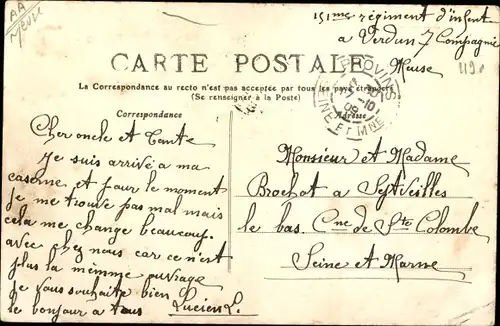 151me régiment d'infent
a Verdun 7 Compagnie
Meuse
CARTE POSTALE
La Correspondance au recto n'est pas acceptée par tous les pays étrangers
(Se renseigner à la Poste)
Correspondance
Adresse
PROVINS
SEINE ET MNE
Cher oncle et Tante
Je suis arrivé a ma
caserne et pour le moment
je me trouve pas mal mais
cela me change beaucoup.
avec chez nous car ce n'est
plus la mimme ouvrage
je vous souhaite bien
le bonjour a tous Lucien L.
Monsieur et Madame
Brochot a Septveilles
le bas. Cne de Ste Colombe
Seine et Marne